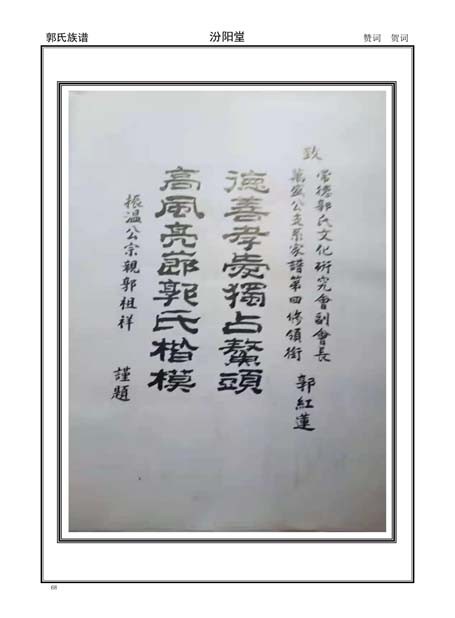 郭氏族谱
汾阳堂
赞词 贺词
致
常德郭氏文化研究會副會長
萬盛公支系家譜第四修領銜
郭紅蓮
德善孝爱獨占鰲頭
高風亮節郭氏楷模
振溫公宗親郭祖祥
謹題
68